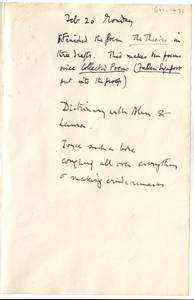 Feb 20 Monday
Finished the poem The Thieves in
three drafts. This makes ten poems
since Collected Poems (
put into the proofs)
Dictionary with Alan &
Laura.
Joyce such a bore
coughing all over everything
& making crude remarks